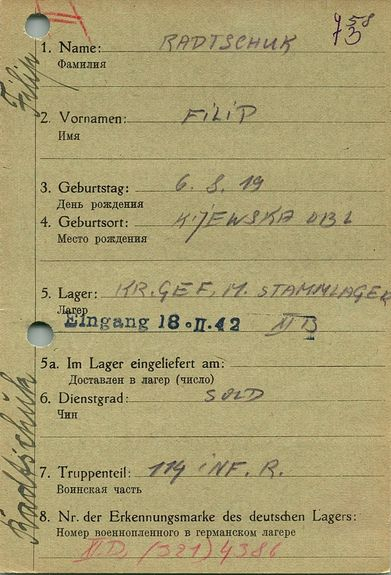 58
73
1. Name: RADTSCHUK
Фамилия
Filip
2. Vornamen: FiLiP
Имя
3. Geburtstag: 6. 8. 19
День рождения
4. Geburtsort: KIJEWSKA OBL
Место рождения
5. Lager: KR. GEF. M. STAMMLAGER
Лагер
Eingang 18. II. 42
5a. Im Lager eingeliefert am:
Доставлен в лагер (число)
6. Dienstgrad: SOLD
Чин
Radtschuk
7. Truppenteil: 114 iNF. R.
Воинская часть
8. Nr. der Erkennungsmarke des deutschen Lagers:
Номер военнопленного в германском лагере
(321) 4386